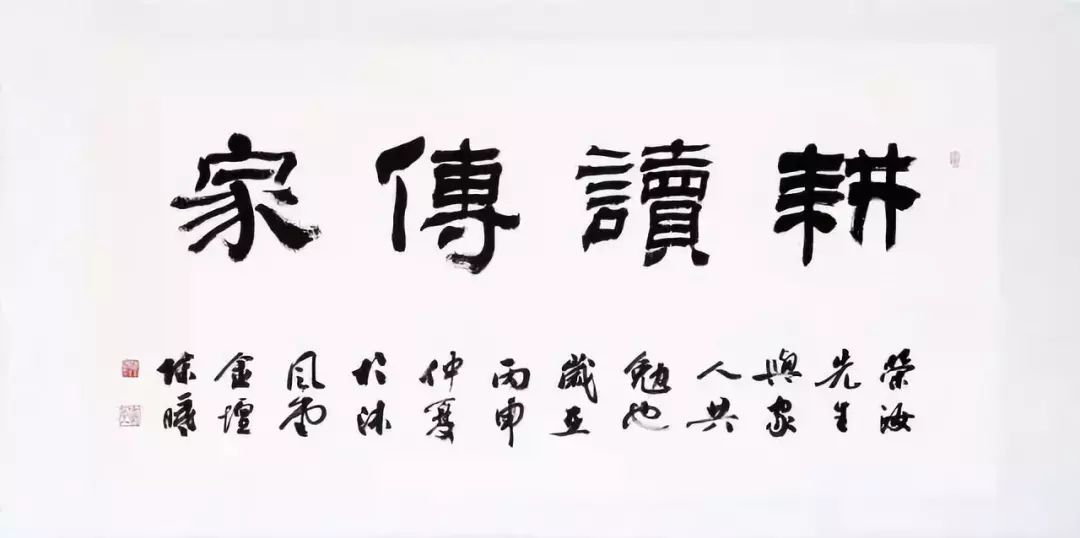 耕讀傳家
榮汝
先生
與家
人共
勉也
歲在
丙申
仲夏
於沐
風堂
金壇